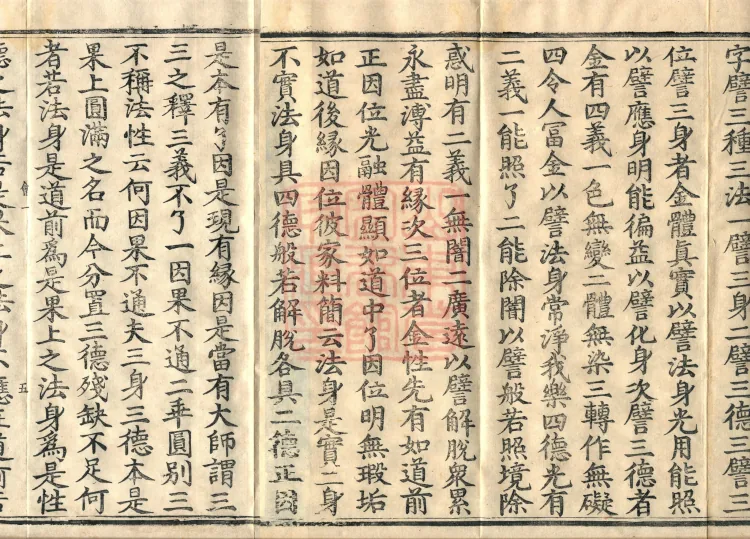 字譬三種三法一譬三身二譬三德三譬三
位譬三身者金體真實以譬法身光用能照
以譬應身明能徧益以譬化身次譬三德者
金有四義一色無變二體無染三轉作無礙
四令人冨金以譬法身常淨我樂四德光有
二義一能照了二能除闇以譬般若照境除
惑明有二義一無闇二廣遠以譬解脫衆累
永盡溥益有緣次三位者金性先有如道前
正因位光融體顯如道中了因位明無瑕垢
如道後緣因位彼家料簡云法身是實二身
不實法身具四德般若解脫各具二德正因
是本有了因是現有緣因是當有大師謂三
三之釋三義不了一因果不通二乖圓別三
不稱法性云何因果不通夫三身三德本是
果上圓滿之名而今分置三德殘缺不足何
者若法身是道前爲是果上之法身爲是性
五